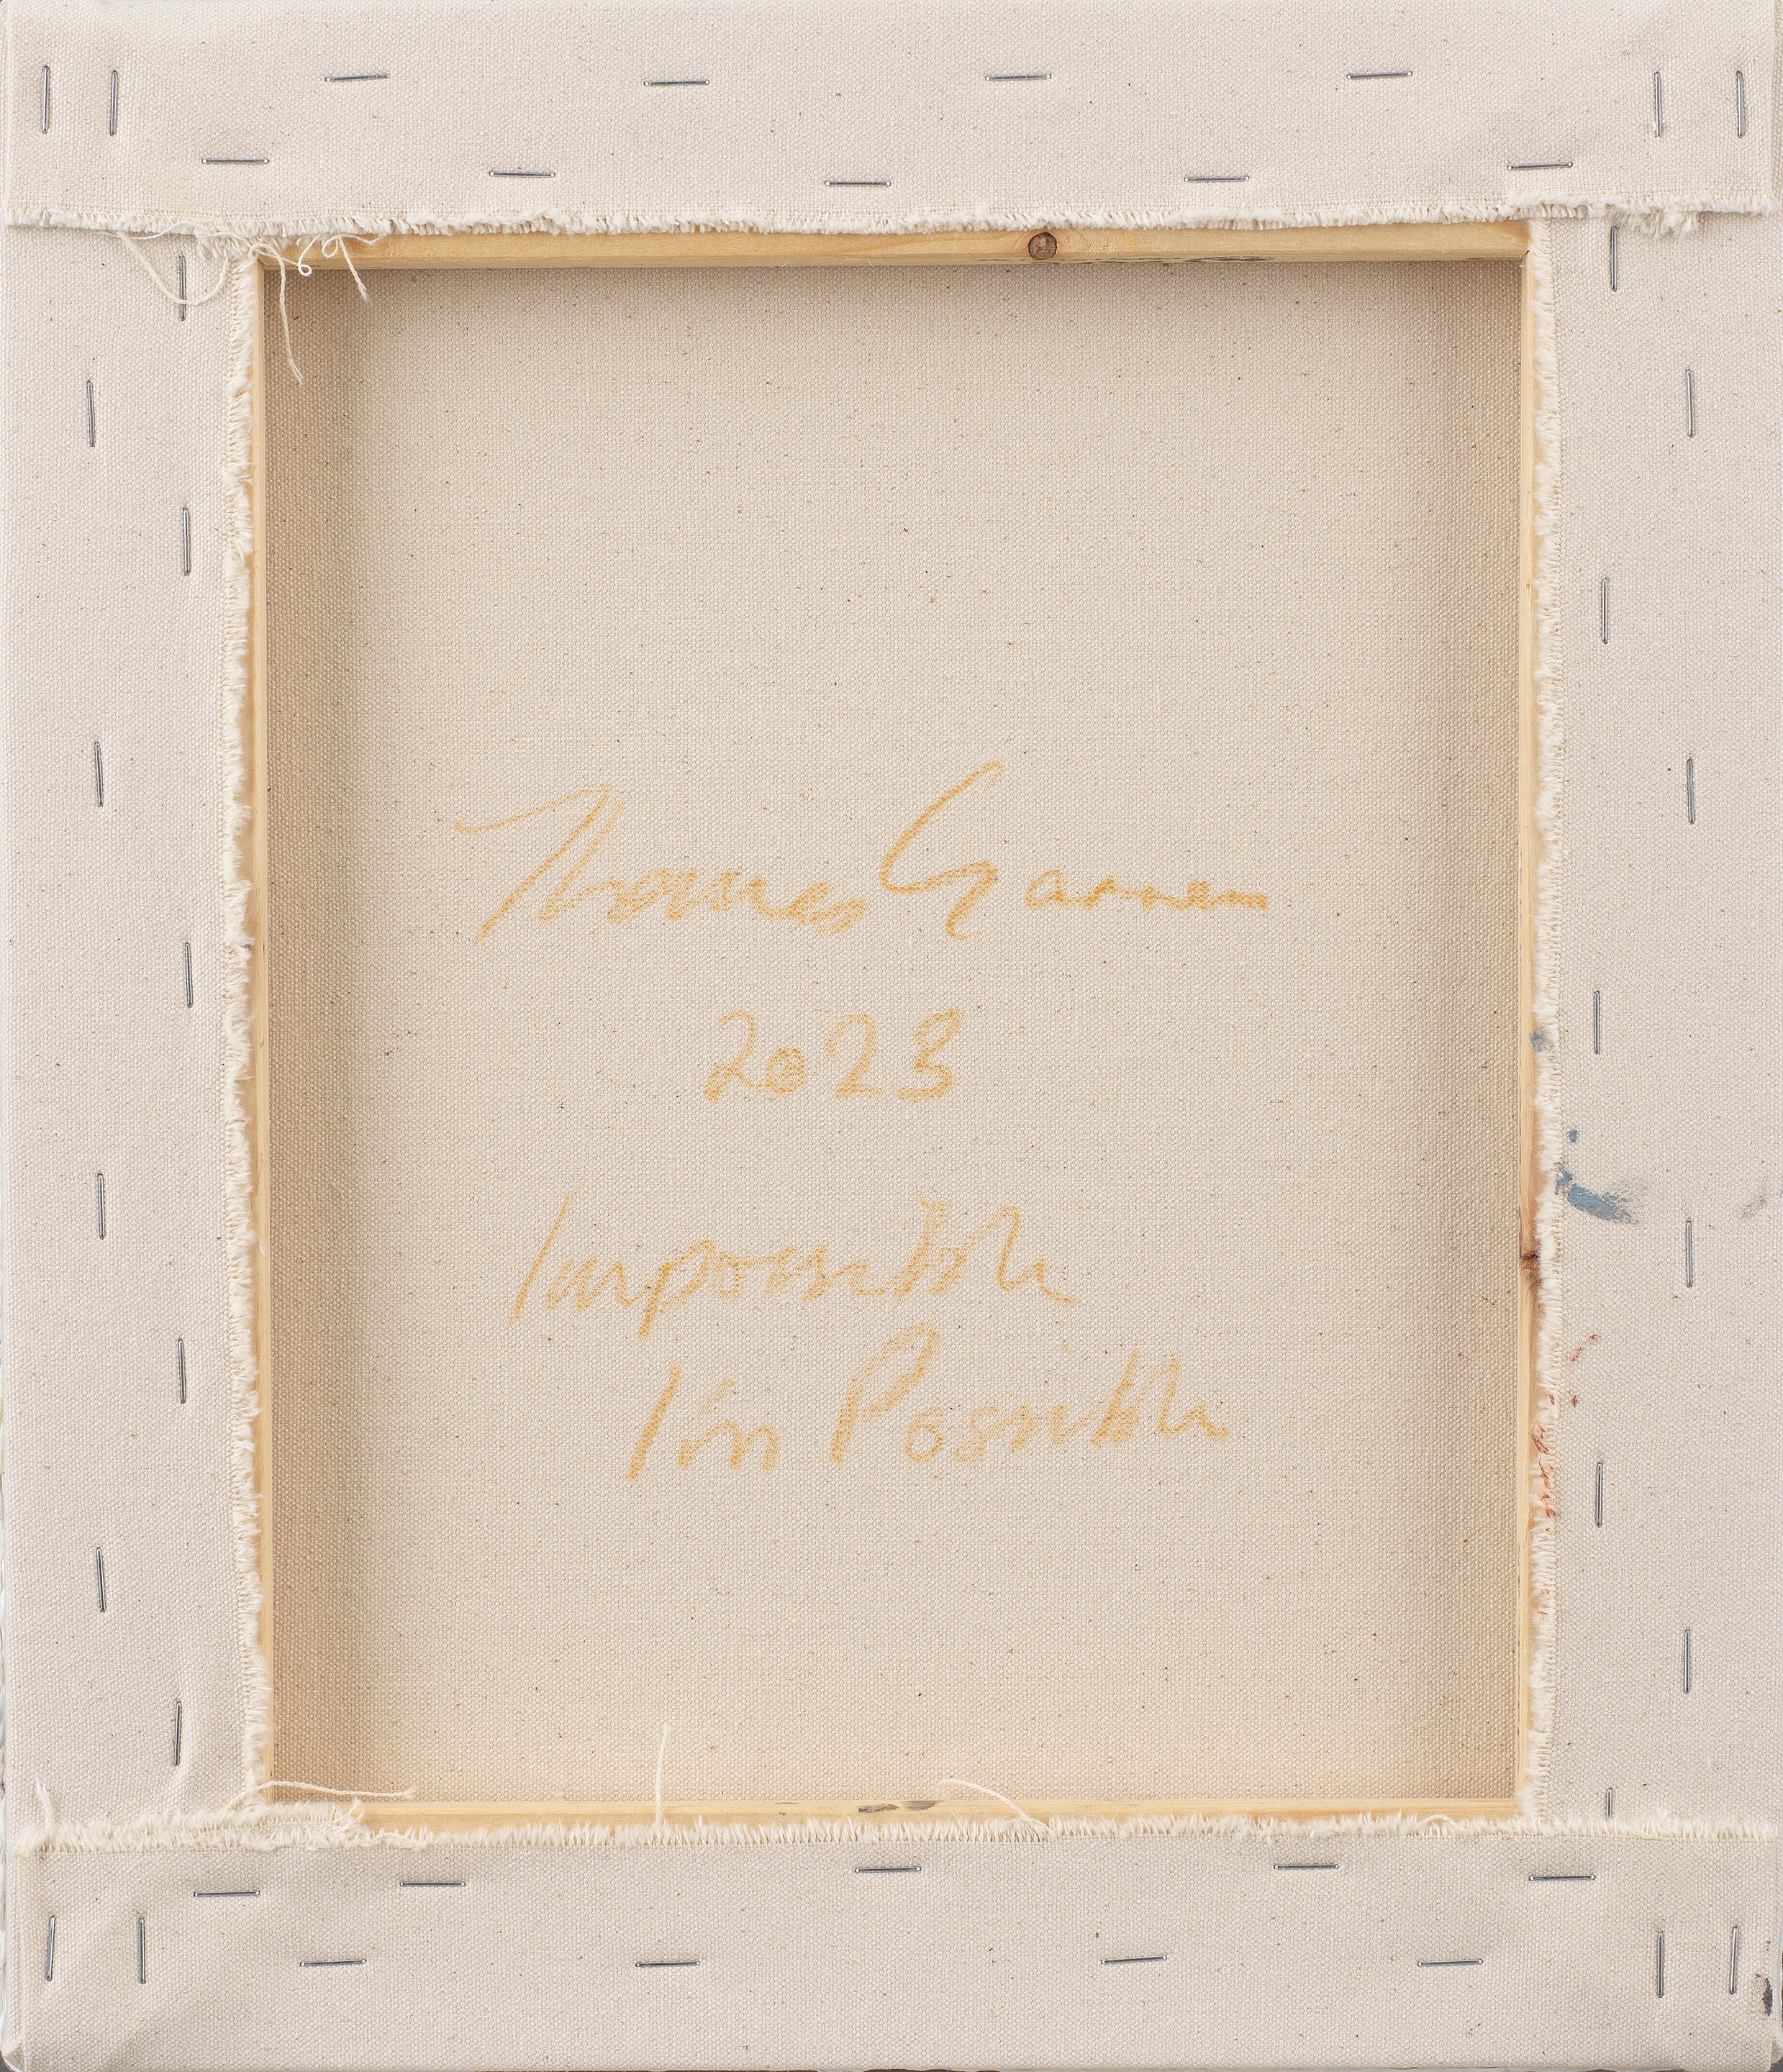 Thomas
2023
Impossible
I'm Possible